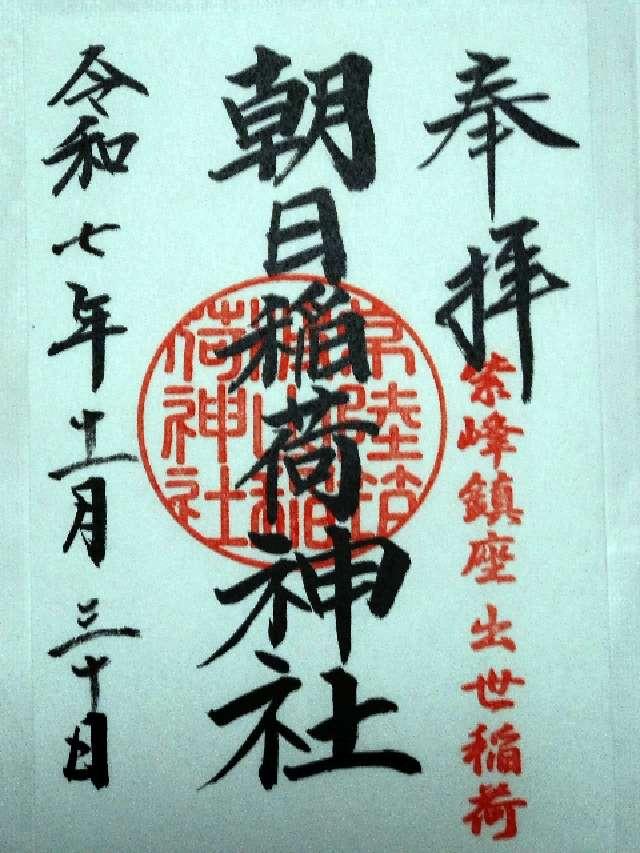 奉拝
紫峰鎮座 出世稲荷
朝日稲荷神社
令和七年十一月三十日